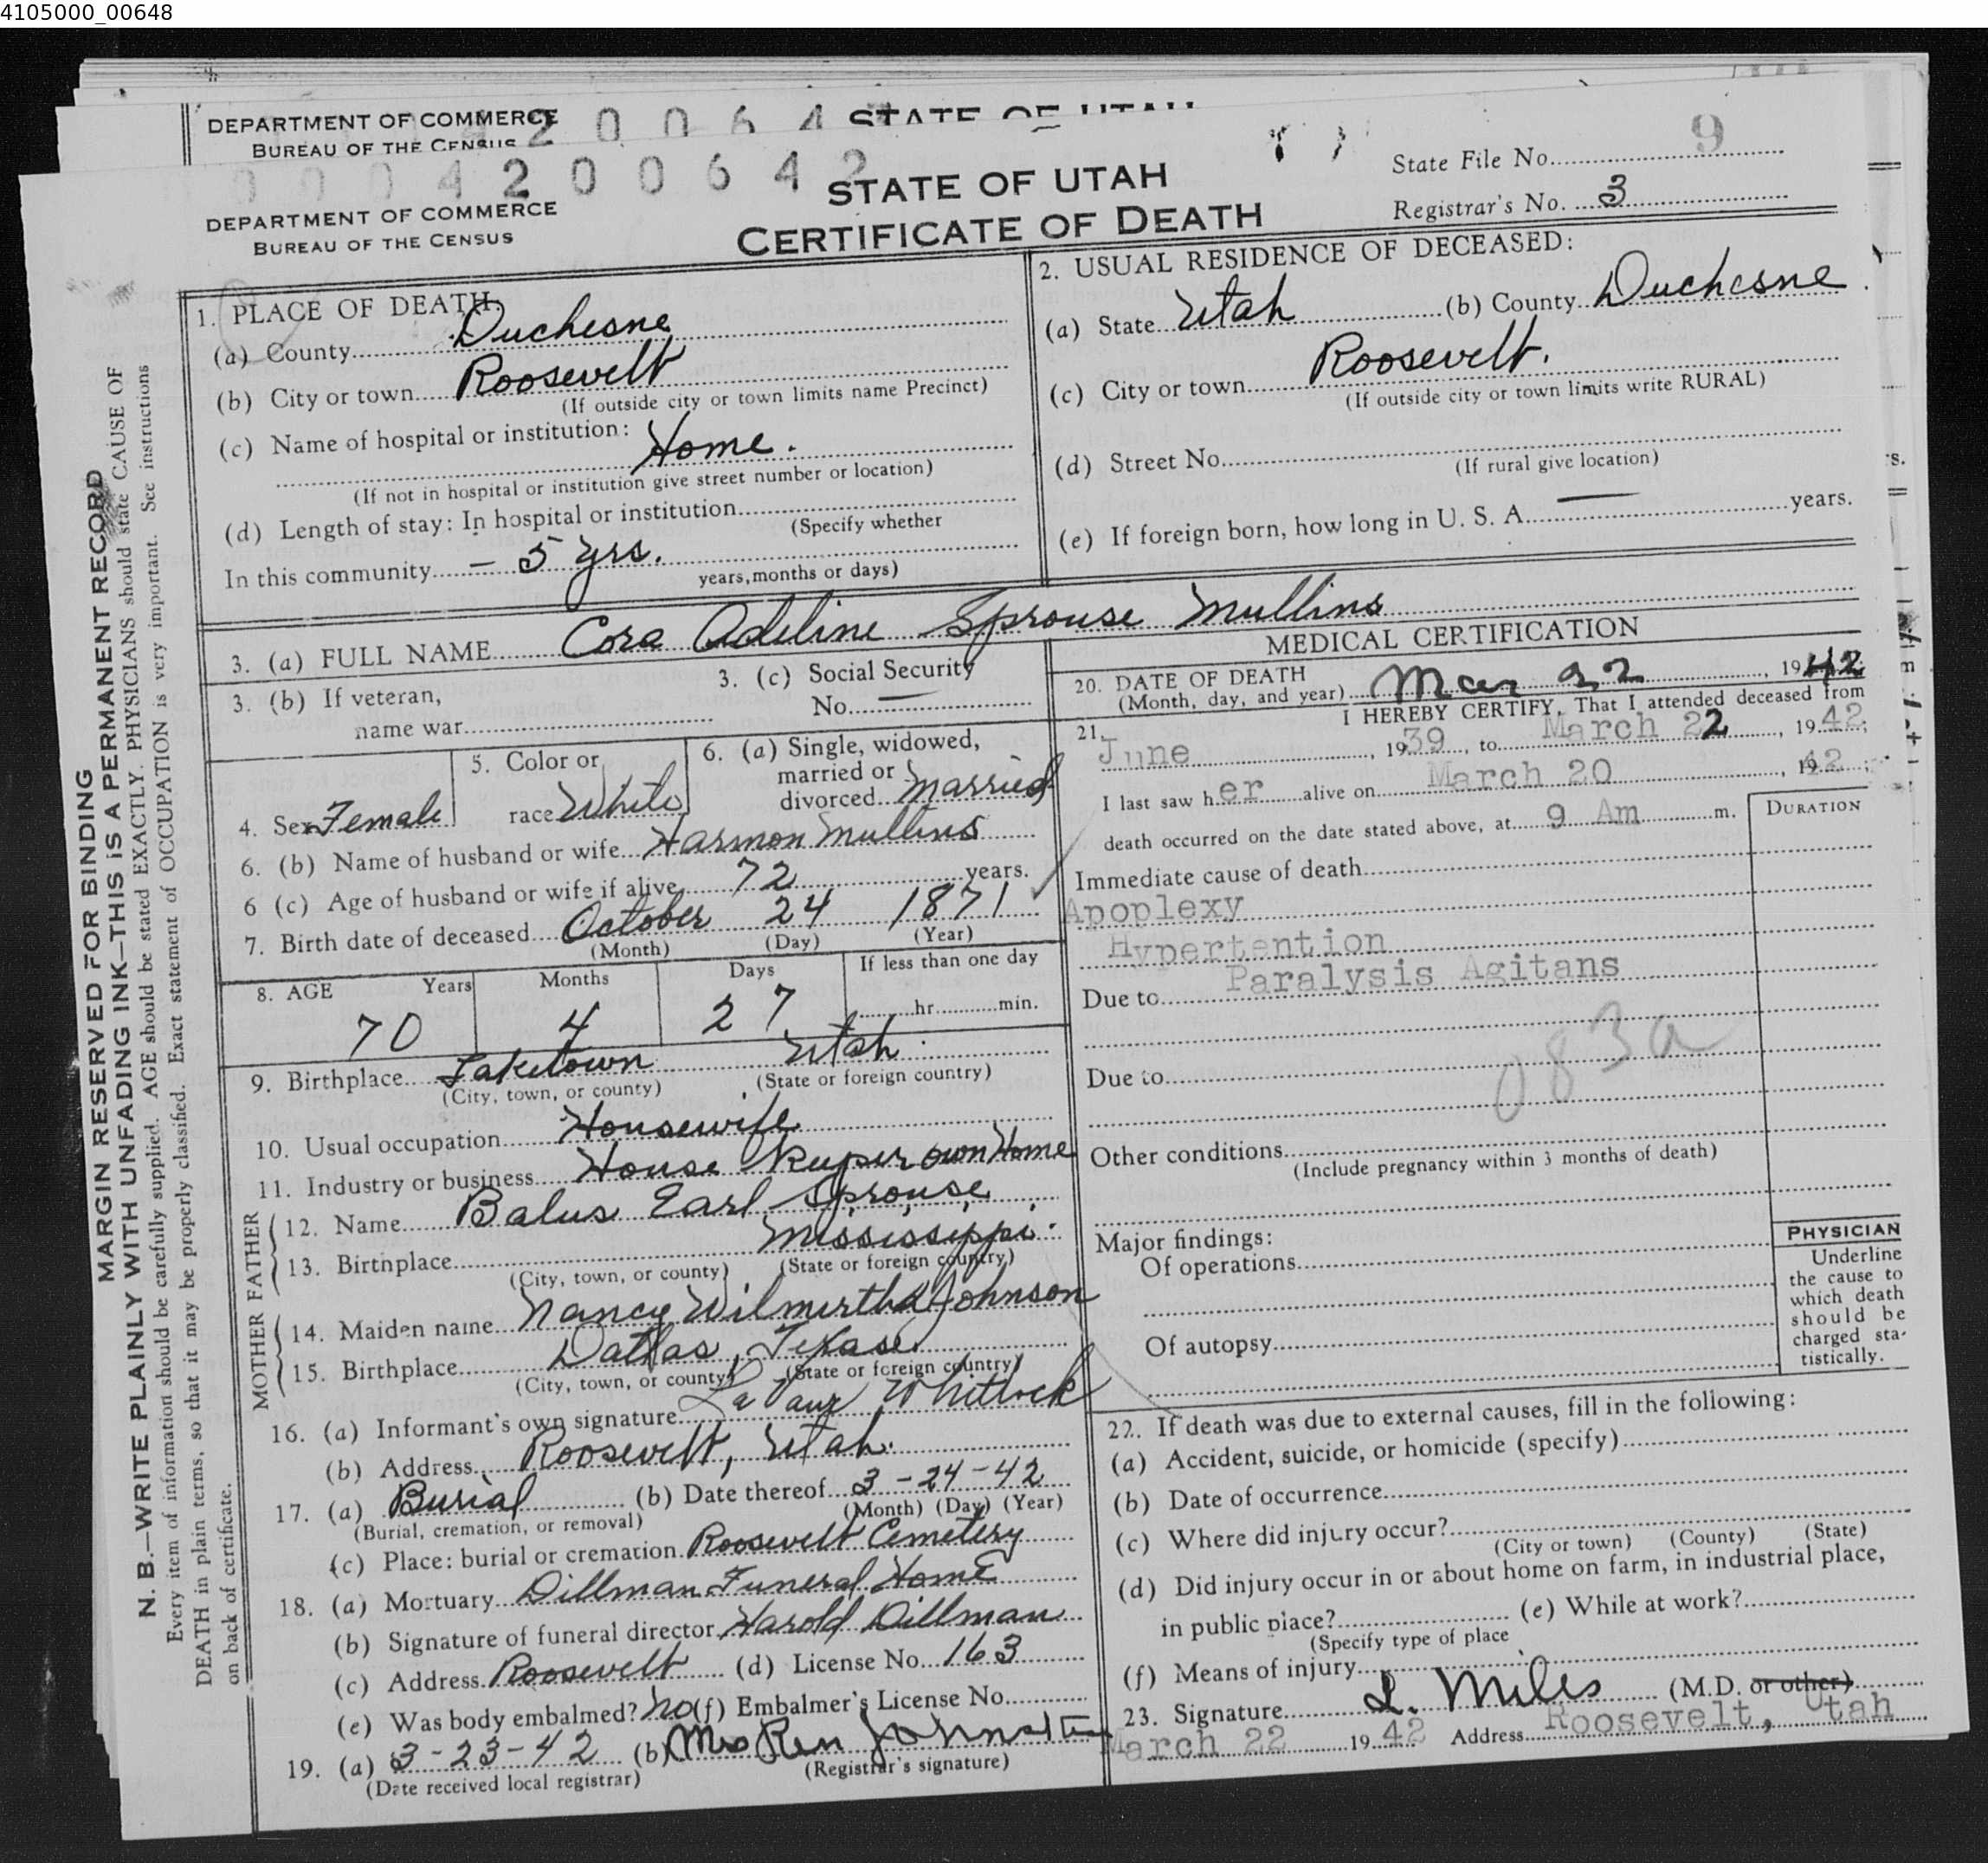 4105000_00648
DEPARTMENT OF COMMERCE
BUREAU OF THE CENSUS
2 0 0 6 4
STATE OF UTAH
0 0 0 4 2 0 0 6 4 2
STATE OF UTAH
CERTIFICATE OF DEATH
DEPARTMENT OF COMMERCE
BUREAU OF THE CENSUS
State File No. 9
Registrar's No. 3
MARGIN RESERVED FOR BINDING
N. B.—WRITE PLAINLY WITH UNFADING INK—THIS IS A PERMANENT RECORD
Every item of information should be carefully supplied. AGE should be stated EXACTLY. PHYSICIANS should state CAUSE OF
DEATH in plain terms, so that it may be properly classified. Exact statement of OCCUPATION is very important. See instructions
on back of certificate.
1. PLACE OF DEATH:
(a) County Duchesne
(b) City or town Roosevelt
(If outside city or town limits name Precinct)
(c) Name of hospital or institution:
Home.
(If not in hospital or institution give street number or location)
(d) Length of stay: In hospital or institution
(Specify whether
In this community — 5 yrs.
years, months or days)
2. USUAL RESIDENCE OF DECEASED:
(a) State Utah (b) County Duchesne
(c) City or town Roosevelt.
(If outside city or town limits write RURAL)
(d) Street No.
(If rural give location)
(e) If foreign born, how long in U. S. A. — years.
3. (a) FULL NAME Cora Adeline Sprouse Mullins
3. (b) If veteran,
name war
3. (c) Social Security
No. —
4. Sex Female
5. Color or
race White
6. (a) Single, widowed,
married or
divorced Married
6. (b) Name of husband or wife Harmon Mullins
6 (c) Age of husband or wife if alive 72 years.
7. Birth date of deceased October 24 1871
(Month) (Day) (Year)
8. AGE Years Months Days If less than one day
70 4 27 hr. min.
9. Birthplace Laketown Utah
(City, town, or county) (State or foreign country)
10. Usual occupation Housewife
11. Industry or business House Keeper own Home
FATHER
12. Name Balus Earl Sprouse
13. Birthplace Mississippi.
(City, town, or county) (State or foreign country)
MOTHER
14. Maiden name Nancy Wilmirtha Johnson
15. Birthplace Dallas, Texas
(City, town, or county) (State or foreign country)
16. (a) Informant's own signature Whitlock
(b) Address Roosevelt, Utah.
17. (a) Burial (b) Date thereof 3-24-42
(Burial, cremation, or removal) (Month) (Day) (Year)
(c) Place: burial or cremation Roosevelt Cemetery
18. (a) Mortuary Dillman Funeral Home
(b) Signature of funeral director Harold Dillman
(c) Address Roosevelt (d) License No. 163
(e) Was body embalmed? No (f) Embalmer's License No.
19. (a) 3-23-42 (b) Mrs Ren
(Date received local registrar) (Registrar's signature)
MEDICAL CERTIFICATION
20. DATE OF DEATH
(Month, day, and year) Mar 22, 1942
21. I HEREBY CERTIFY, That I attended deceased from
June, 1939, to March 22, 1942;
I last saw her alive on March 20, 1942
death occurred on the date stated above, at 9 Am m.
DURATION
Immediate cause of death
Apoplexy
Hypertention
Due to Paralysis Agitans
083a
Due to
Other conditions
(Include pregnancy within 3 months of death)
Major findings:
Of operations
Of autopsy
PHYSICIAN
Underline
the cause to
which death
should be
charged sta-
tistically.
22. If death was due to external causes, fill in the following:
(a) Accident, suicide, or homicide (specify)
(b) Date of occurrence
(c) Where did injury occur?
(City or town) (County) (State)
(d) Did injury occur in or about home on farm, in industrial place,
in public place? (e) While at work?
(Specify type of place
(f) Means of injury
23. Signature L. Miles (M.D. or other)
March 22 1942 Address Roosevelt, Utah